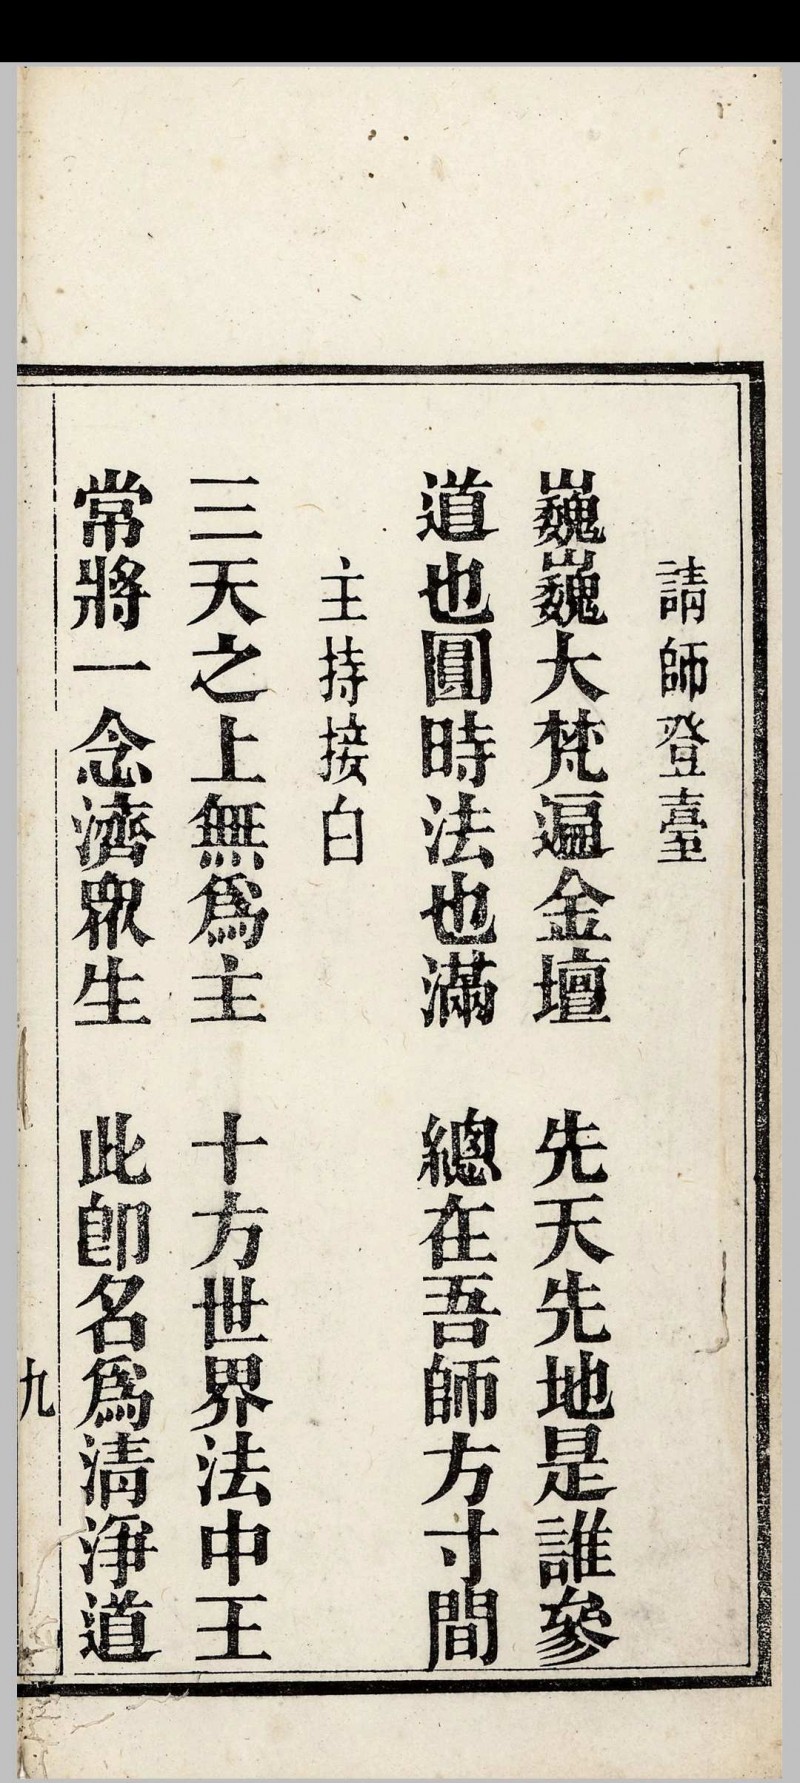 請師登臺
巍巍大梵遍金壇　先天先地是誰參
道也圓時法也滿　總在吾師方寸間
主持接白
三天之上無爲主　十方世界法中王
常將一念濟眾生　此卽名爲清淨道
九